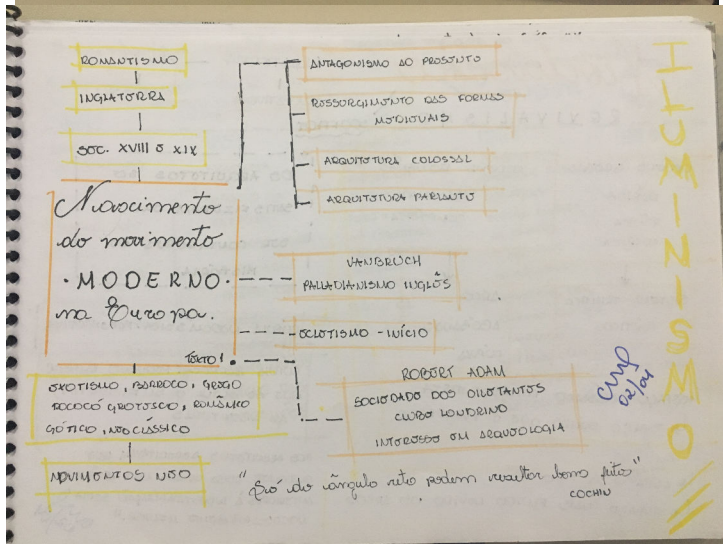 ROMANTISMO
INGLATERRA
SEC. XVIII E XIX
Nascimento
do movimento
·MODERNO·
na Europa.
TEXTO 1.
EXOTISMO, BARROCO, GREGO
ROCOCÓ GROTESCO, ROMÂNICO
GÓTICO, NEOCLÁSSICO
MOVIMENTOS NEO
ANTAGONISMO AO PRESENTE
RESSURGIMENTO DAS FORMAS
MEDIEVAIS
ARQUITETURA COLOSSAL
ARQUITETURA PARLANTE
VANBRUCH
PALLADIANISMO INGLÊS
ECLETISMO - INÍCIO
ROBERT ADAM
SOCIEDADE DOS DILETANTES
CLUBE LONDRINO
INTERESSE EM ARQUEOLOGIA
"Só do ângulo reto podem resultar bons feitos"
COCHIN
02/04
ILUMINISMO